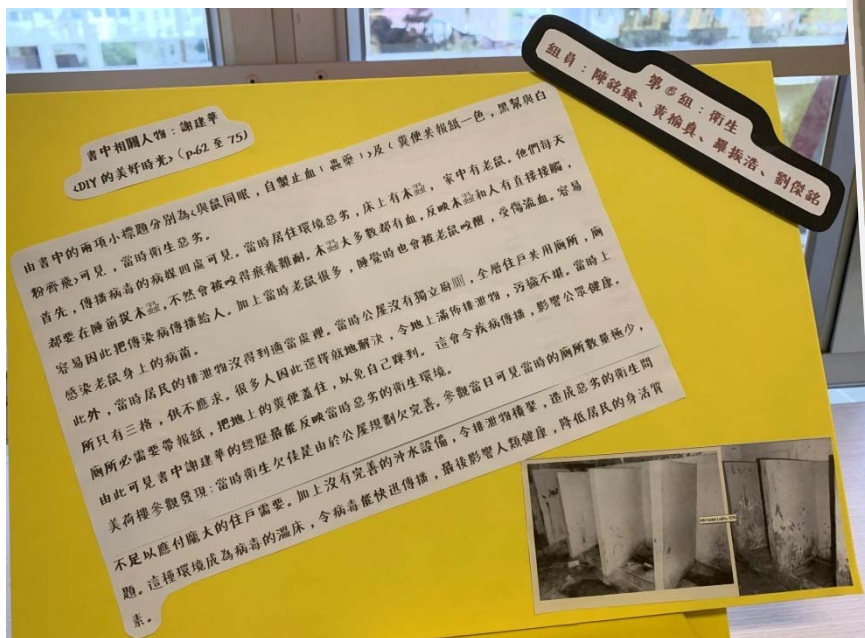 第⑤組：衛生
組員：陳銘臻、黃榆真、羅振浩、劉傑銘
書中相關人物：謝建華
<DIY的美好時光> (p.62 至 75)
由書中的兩項小標題分別為<與鼠同眠，自製止血！蟲藥！>及<糞便共報紙一色，黑幫與白
粉齊飛>可見，當時衛生惡劣。
首先，傳播病毒的病媒四處可見。當時居住環境惡劣，床上有木蝨，家中有老鼠。他們每天
都要在睡前捉木蝨，不然會被咬得痕癢難耐。木蝨大多數都有血，反映木蝨和人有直接接觸，
容易因此把傳染病傳播給人。加上當時老鼠很多，睡覺時也會被老鼠咬醒，受傷流血。容易
感染老鼠身上的病菌。
此外，當時居民的排泄物沒得到適當處理。當時公屋沒有獨立廚厠，全層住戶共用廁所，廁
所只有三格，供不應求。很多人因此選擇就地解決，令地上滿佈排泄物，污穢不堪。當時上
廁所必需要帶報紙，把地上的糞便蓋住，以免自己踩到。這會令疾病傳播，影響公眾健康。
由此可見書中謝建華的經歷最能反映當時惡劣的衛生環境。
美荷樓參觀發現：當時衛生欠佳是由於公屋規劃欠完善。參觀當日可見當時的廁所數量極少，
不足以應付龐大的住戶需要。加上沒有完善的沖水設備，令排泄物積聚，造成惡劣的衛生問
題。這種環境成為病毒的溫床，令病毒能快迅傳播，最後影響人類健康，降低居民的身活質
素。